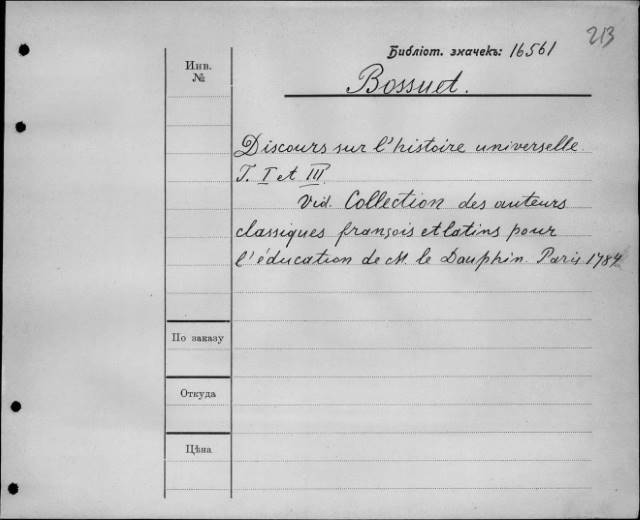 213
Библіот. значекъ: 16561
Инв.
№
Bossuet.
Discours sur l'histoire universelle.
T. I et III.
Vid. Collection des auteurs
classiques françois et latins pour
l'éducation de M. le Dauphin. Paris
По заказу
Откуда
Цѣна